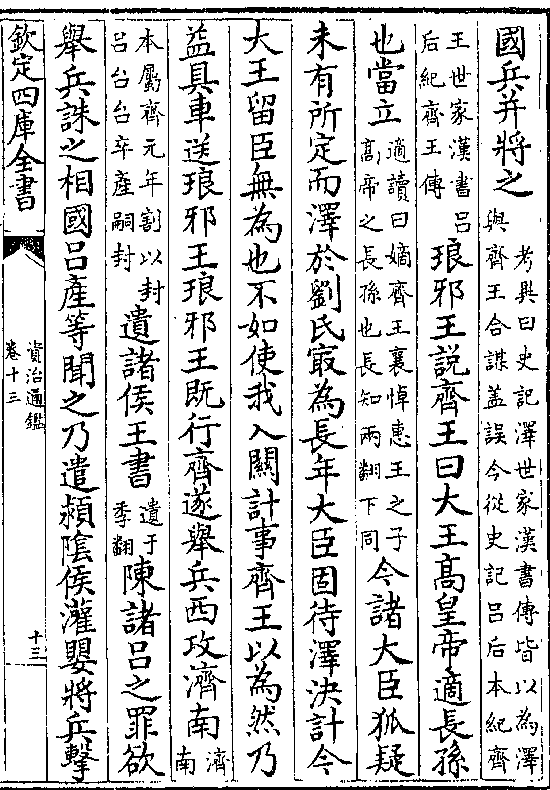 國兵并將之考異曰史記澤世家漢書傳皆以為澤與齊王合謀葢誤今從史記吕后本紀齊
王世家漢書吕后紀齊王傳琅邪王説齊王曰大王髙皇帝適長孫
也當立適讀曰嫡齊王襄悼惠王之子髙帝之長孫也長知兩翻下同今諸大臣狐疑
未有所定而澤於劉氏㝡為長年大臣固待澤決計今
大王留臣無為也不如使我入關計事齊王以為然乃
益具車送琅邪王琅邪王既行齊遂舉兵西攻濟南濟南
本屬齊元年割以封吕台台卒產嗣封遺諸侯王書遺于季翻陳諸吕之罪欲
舉兵誅之相國吕產等聞之乃遣潁隂侯灌嬰將兵擊
欽定四庫全書
資治通鑑
卷十三
十三